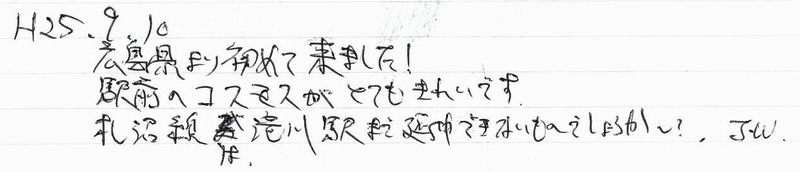 H25.9.10
広島県より初めて来ました!
駅前のコスモスがとてもきれいです。
札沼線は滝川駅まで延伸できないものでしょうか~?. J.W.